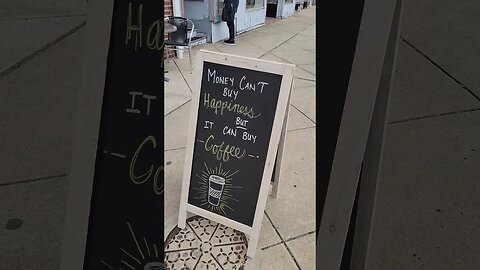 Money Can't
Buy
Happiness
But
It Can Buy
Coffee